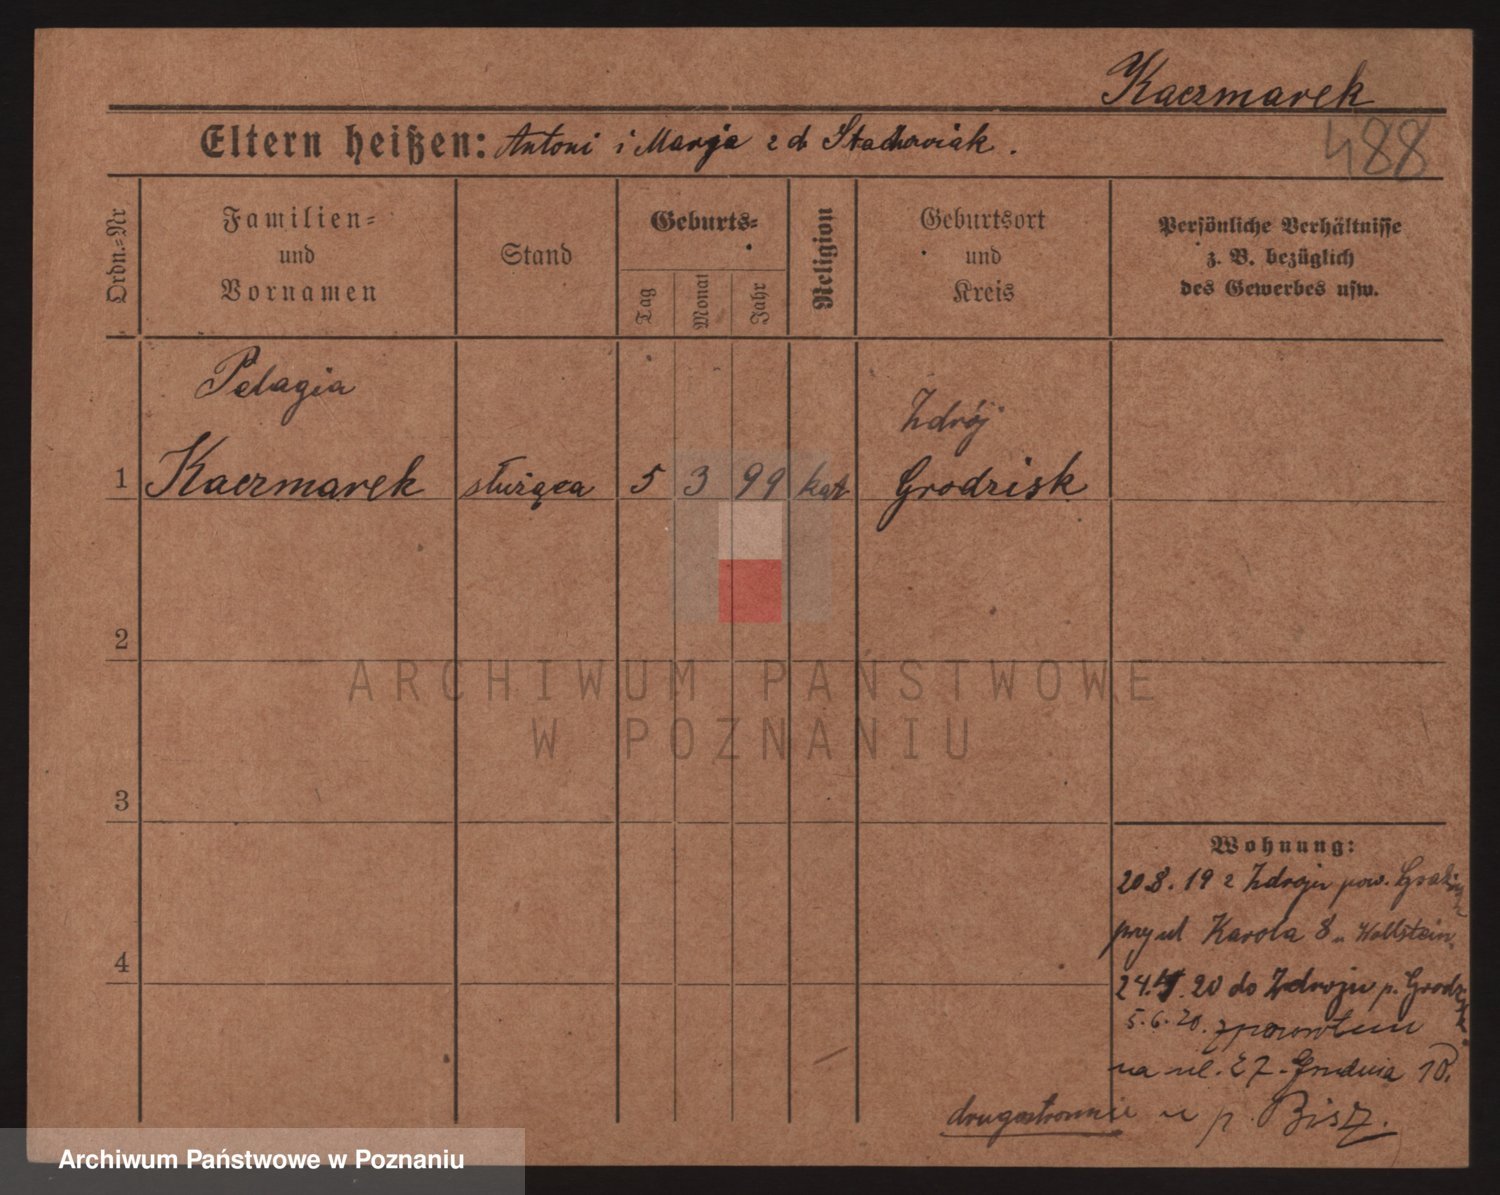 Kaczmarek
Eltern heißen: Antoni i Marja z d Stachowiak.
488
Ordn.=Nr
Familien= und Vornamen
Stand
Geburts=
Tag
Monat
Jahr
Religion
Geburtsort und Kreis
Persönliche Verhältnisse
z. B. bezüglich
des Gewerbes usw.
Pelagia
Zdrój
1 Kaczmarek służąca 5 3 99 kat Grodzisk
2
ARCHIWUM PAŃSTWOWE
W POZNANIU
3
Wohnung:
20.8.19 z Zdroju pow. Grodzisk
przy ul Karola 8 u Wollstein
4
24.4.20 do Zdroju p. Grodzisk.
5.6.20. zpowrotem
na ul. 27. Grudnia 10.
drugostronnie u p. Bisz.
Archiwum Państwowe w Poznaniu